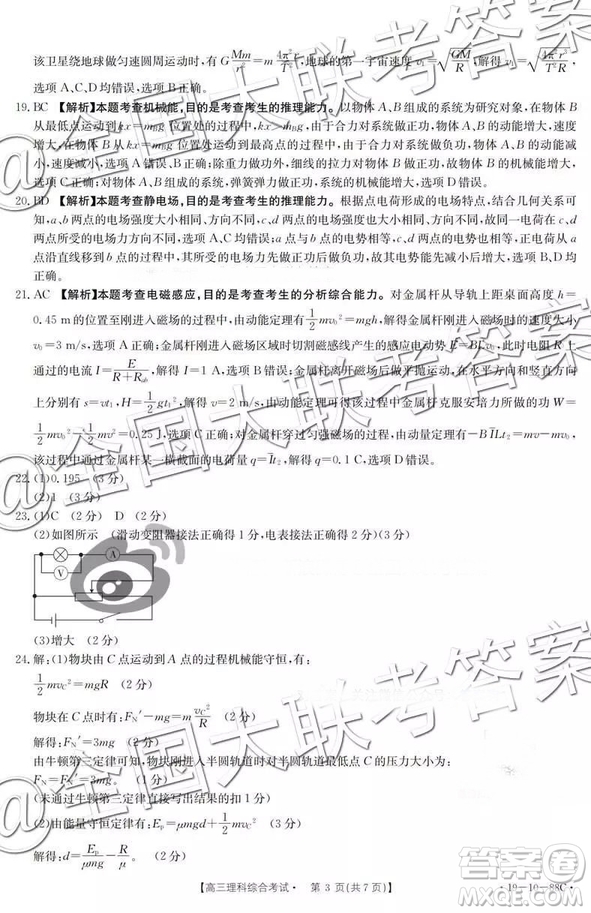 该卫星绕地球做匀速圆周运动时,有G Mm/r² = m 4π²r/T²,地球的第一宇宙速度v₁=√(GM/R),解得v₁=√(4π²r³/T²R),
选项A、C、D均错误,选项B正确。
19. BC 【解析】本题考查机械能,目的是考查考生的推理能力。以物体A、B组成的系统为研究对象,在物体B
从最低点运动到kx=mBg位置处的过程中,kx>mBg,由于合力对系统做正功,物体A、B的动能增大,速度
增大,在物体B从kx=mBg位置处运动到最高点的过程中,kx<mBg,由于合力对系统做负功,物体A、B的
动能减小,速度减小,选项A错误、B正确;由于动能增大,细线的拉力对物体A做正功,物体A的机械能增大,
选项C正确;对物体A、B组成的系统,弹簧弹力做正功,系统的机械能增大,选项D错误。
20. BD 【解析】本题考查静电场,目的是考查考生的推理能力。根据点电荷的电场特点,结合几何关系可知
a、b两点的电场强度大小相同、方向不同,c、d两点的电场强度大小相同、方向不同,故同一点电荷在a、b两
点的电场力方向不同,选项A、C均错误;a点与b点的电势相等,c点与d点的电势也相等,故一正电荷从a点
沿直线移到b点的过程中,电势能先增大后减小,选项B正确;
正确。
21. AC 【解析】本题考查电磁感应,目的是考查考生的分析综合能力。对金属杆从导轨上距桌面高度h=
0.45 m的位置至刚进入磁场的过程中,由动能定理有½mv₀²=mgh,解得金属杆刚进入磁场时的速度大小
v₀=3 m/s,选项A正确;金属杆刚进入磁场区域时切割磁感线产生的感应电动势E=BLv₀,此时电阻R上
通过的电流I=E/(R+Rab),解得I=1 A,选项B错误;金属杆离开磁场后做平抛运动,在水平方向和竖直方向
上分别有s=vt₁,h=½gt₁²,由动能定理可得该过程中金属杆克服安培力所做的功W=
½mv₀²−½mv²=0.25 J,选项C正确;对金属杆穿过匀强磁场的过程,由动量定理有−BILt₂=mv−mv₀,
该过程中通过金属杆某一横截面的电荷量q=It₂,解得q=0.1 C,选项D错误。
22. (1)0.195 (3分)
(2)1 (3分)
23. (1)C (2分) D (2分)
(2)如图所示 (滑动变阻器接法正确得1分,电表接法正确得2分)(3分)
A
V
(3)增大 (2分)
24. 解:(1)物块由C点运动到A点的过程机械能守恒,有:
½mvC²=mgR (2分)
物块在C点时,有:FN′−mg=m vC²/R (2分)
解得:FN′=3mg (2分)
由牛顿第三定律可知,物块刚进入半圆轨道时对半圆轨道最低点C的压力大小为:
FN=FN′=3mg。(2分)
(未通过牛顿第三定律求压力扣2分)
(2)由能量守恒定律有:Ep=μmgd+½mvC² (2分)
解得:d=Ep/μmg−R/μ。(2分)
【高三理科综合考试· 第 3 页(共 7 页)】
·19-10-88C·
@全国大联考答案